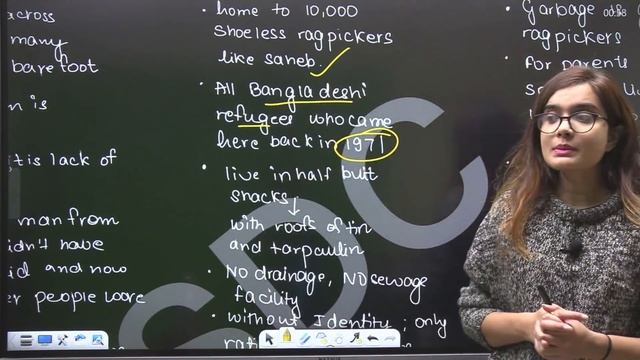 across
many
bare foot
is
it is lack of
man from
didn't have
and now
people wore
• home to 10,000
shoeless ragpickers
like saheb.
• All Bangladeshi
refugees who came
here back in 1971
• live in half butt
shacks
with roofs of tin
and tarpaulin
• No drainage, NO sewage
facility
• without Identity : only
• Garbage is
ragpickers
• For parents
SDC
00:58